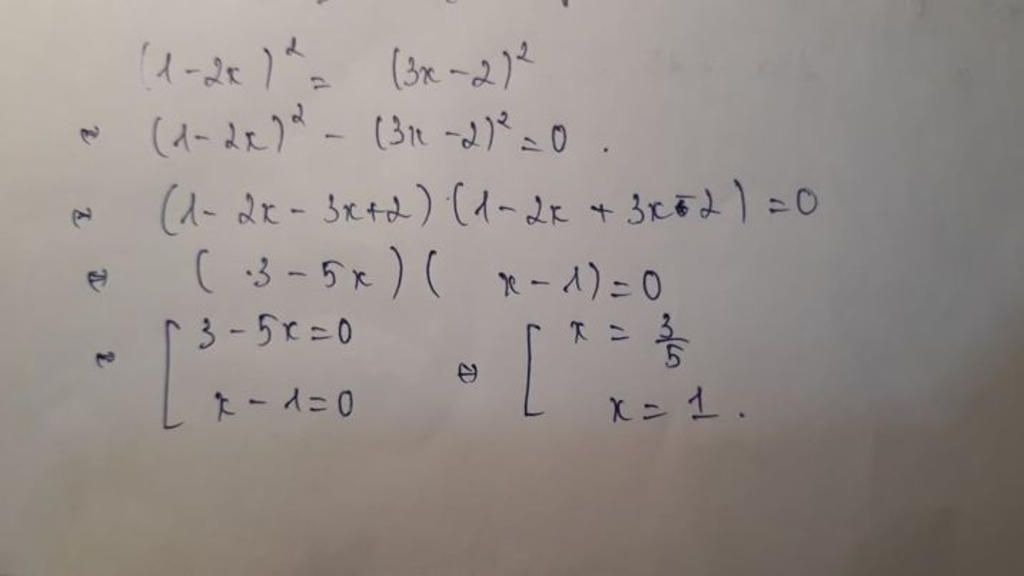 (1-2x)² = (3x-2)²
⇔ (1-2x)² - (3x-2)² = 0.
⇔ (1-2x-3x+2)(1-2x+3x-2) = 0
⇔ (3-5x)(x-1) = 0
⇔ [ 3-5x=0 ⇔ [ x = 3/5
x-1=0 x = 1.